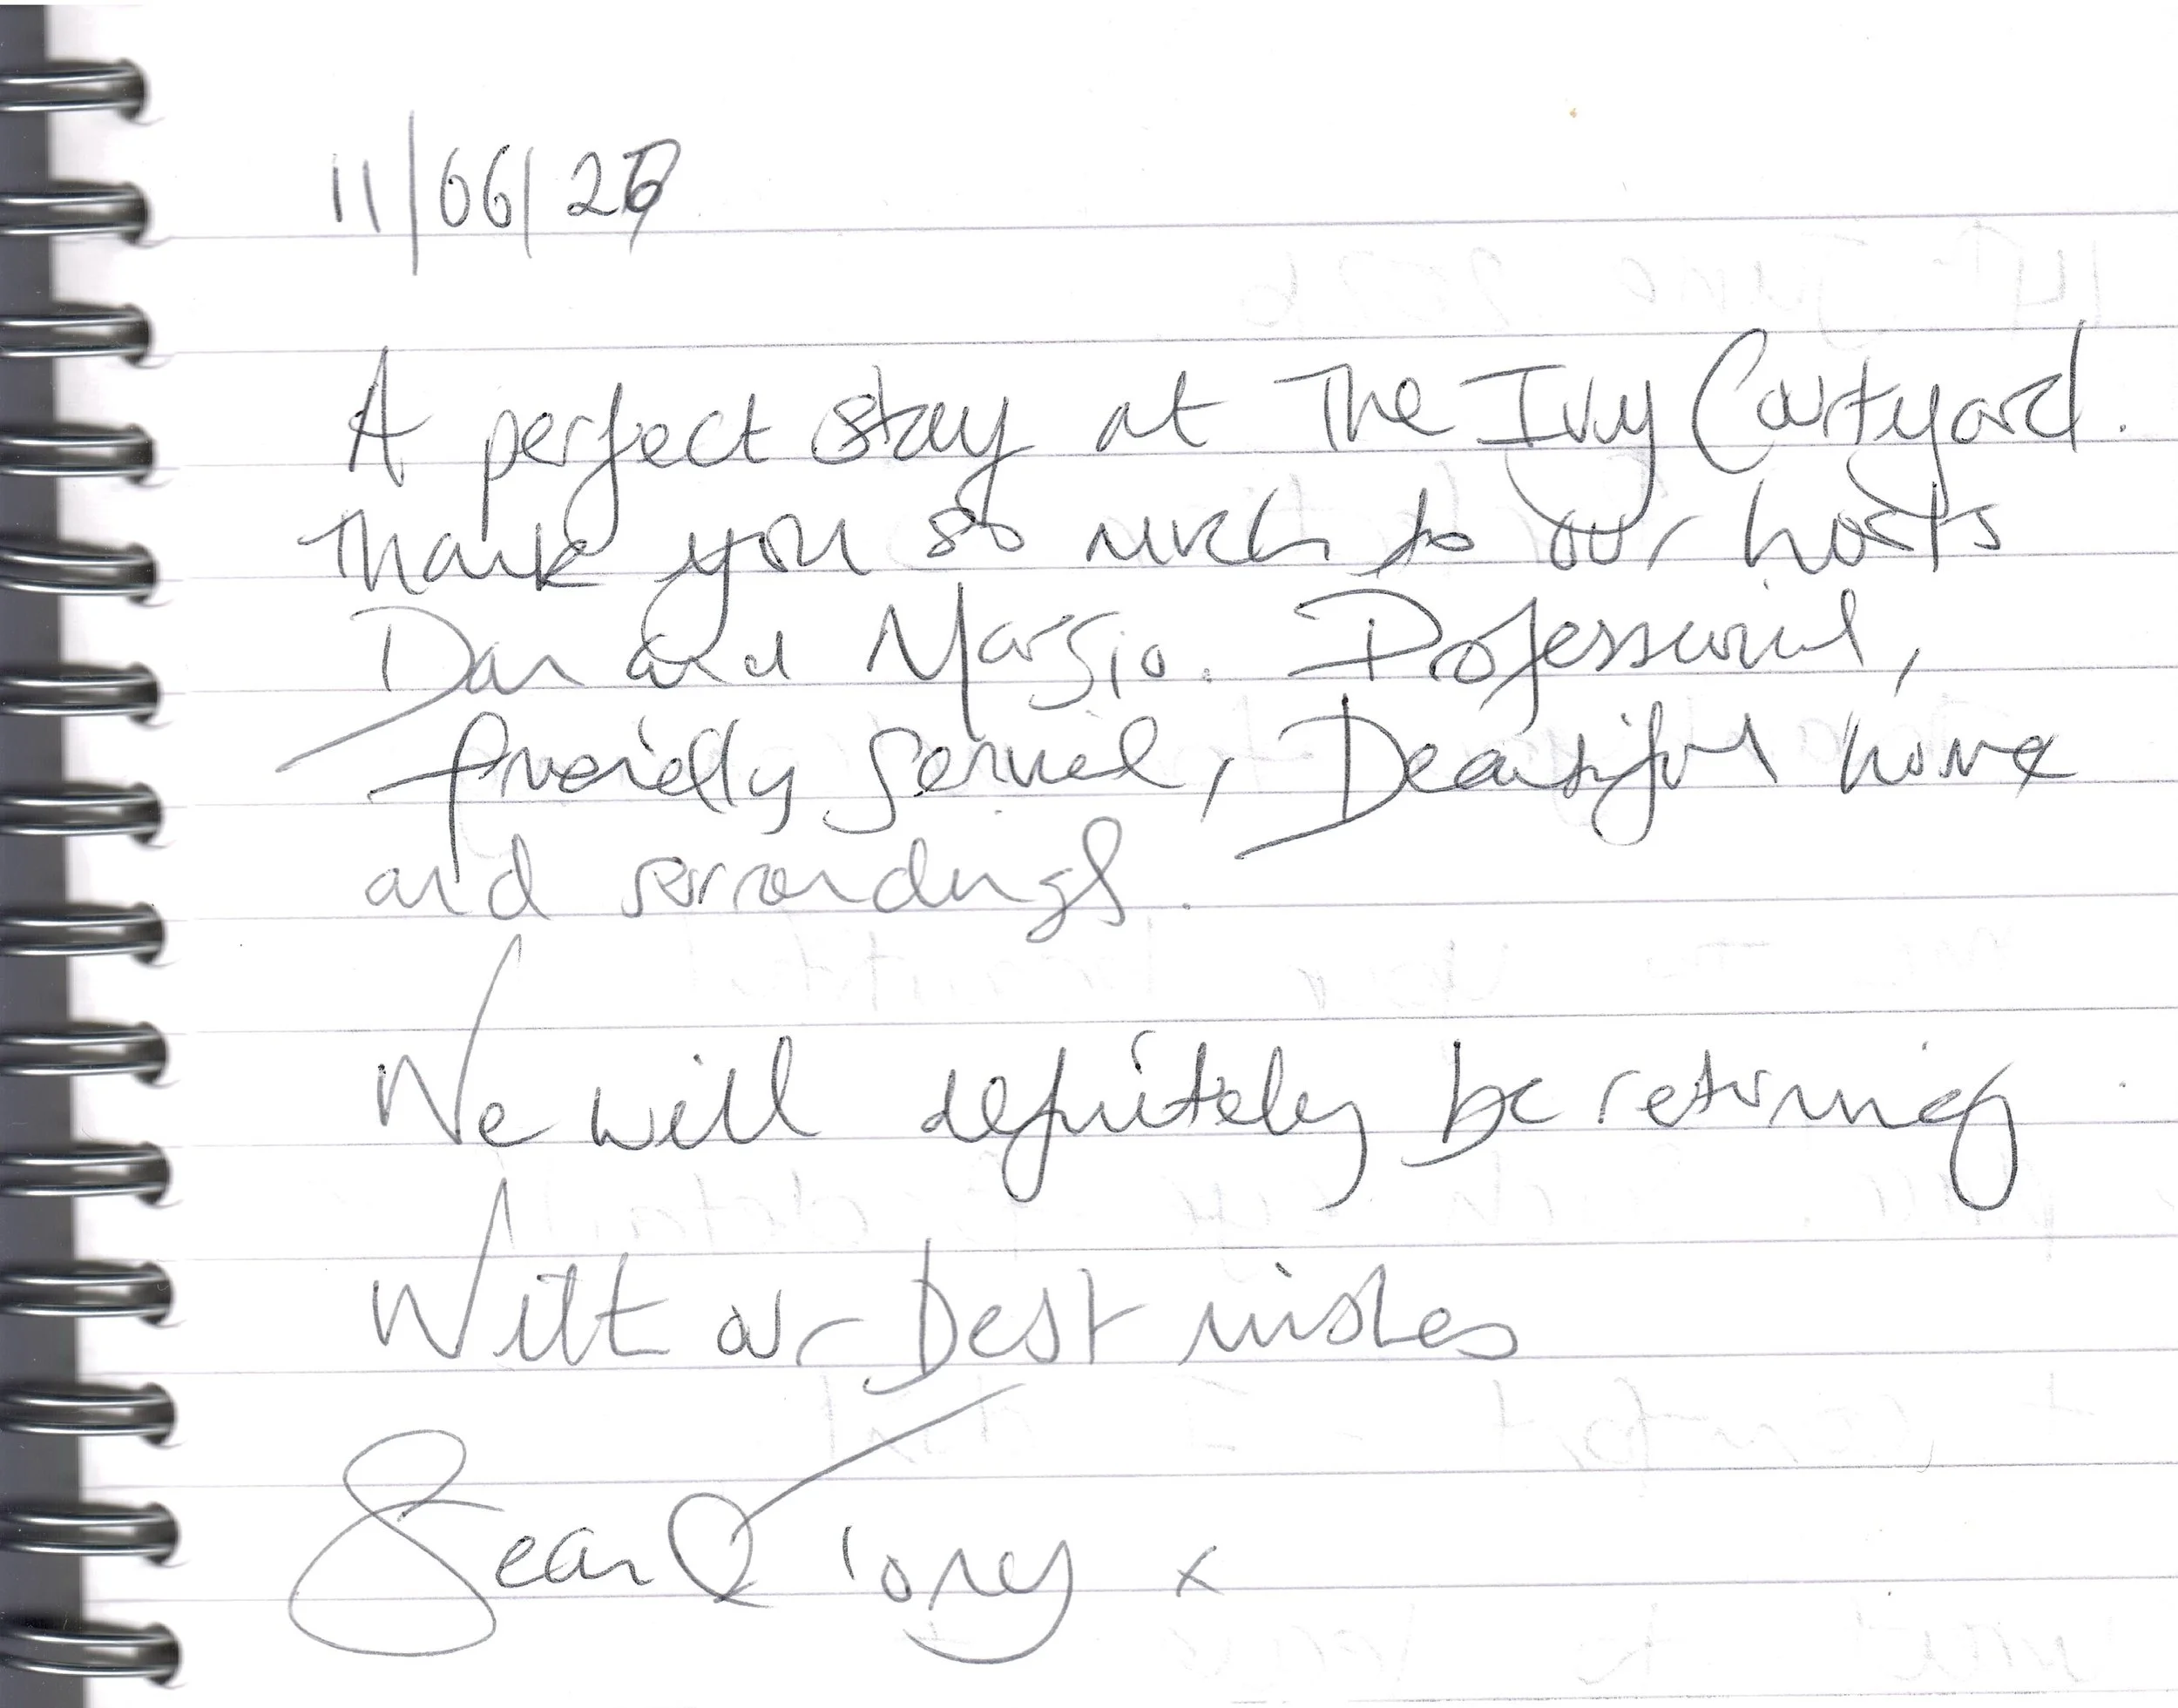 11/06/26
A perfect stay at The Ivy Courtyard.
Thank you so much to our hosts
Dan and Margio. Professional,
friendly service, Beautiful home
and surroundings.
We will definitely be returning
With our best wishes
Sean & Tony x